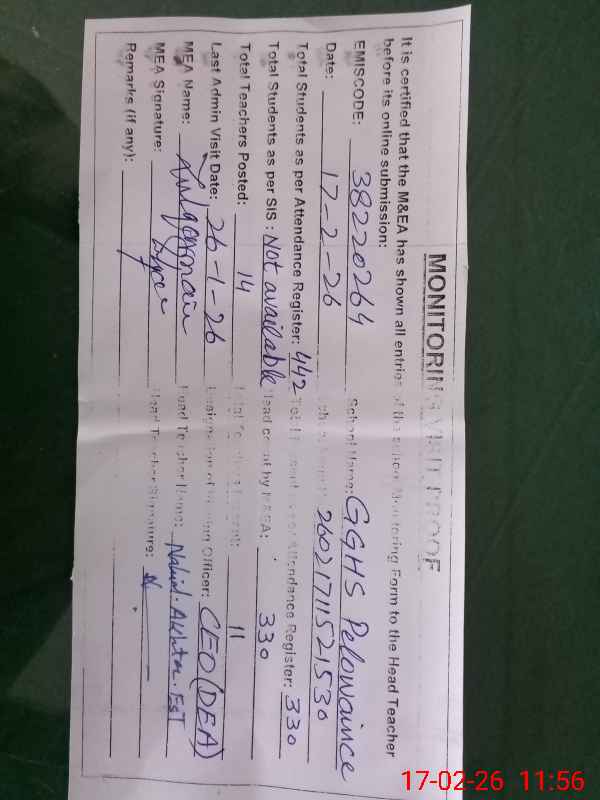 MONITORING VISIT PROOF
It is certified that the M&EA has shown all entries of the school Monitoring Form to the Head Teacher
before its online submission:
EMISCODE: 38220264 School Name: GGHS Pelowaince
Date: 17-2-26 26021711521530
Total Students as per Attendance Register: 442 Attendance Register: 330
Total Students as per SIS : Not available Head count by M&EA: 330
Total Teachers Posted: 14 Total Teachers Present: 11
Last Admin Visit Date: 26-1-26 Designation of Visiting Officer: CEO (DEA)
MEA Name: Zulqarnain Head Teacher Name: Nahid Akhtar. EST
MEA Signature: Head Teacher Signature:
Remarks (if any):
17-02-26 11:56